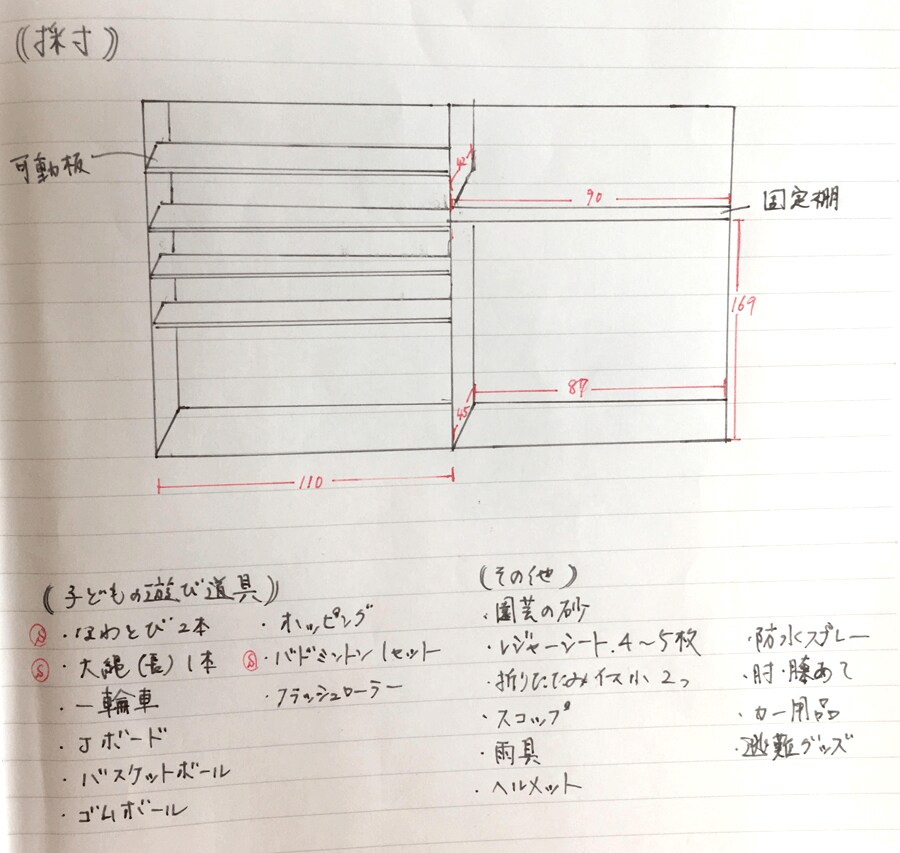 《採寸》
可動板
42
90
固定棚
169
87
45
110
《子どもの遊び道具》
Ⓢ・なわとび2本
Ⓢ・大縄(長)1本
・一輪車
・Jボード
・バスケットボール
・ゴムボール
・ホッピング
Ⓢ・バドミントン1セット
・フラッシュローラー
(その他)
・園芸の砂
・レジャーシート.4〜5枚
・折りたたみイス小2つ
・スコップ
・雨具
・ヘルメット
・防水スプレー
・肘・膝あて
・カー用品
・避難グッズ